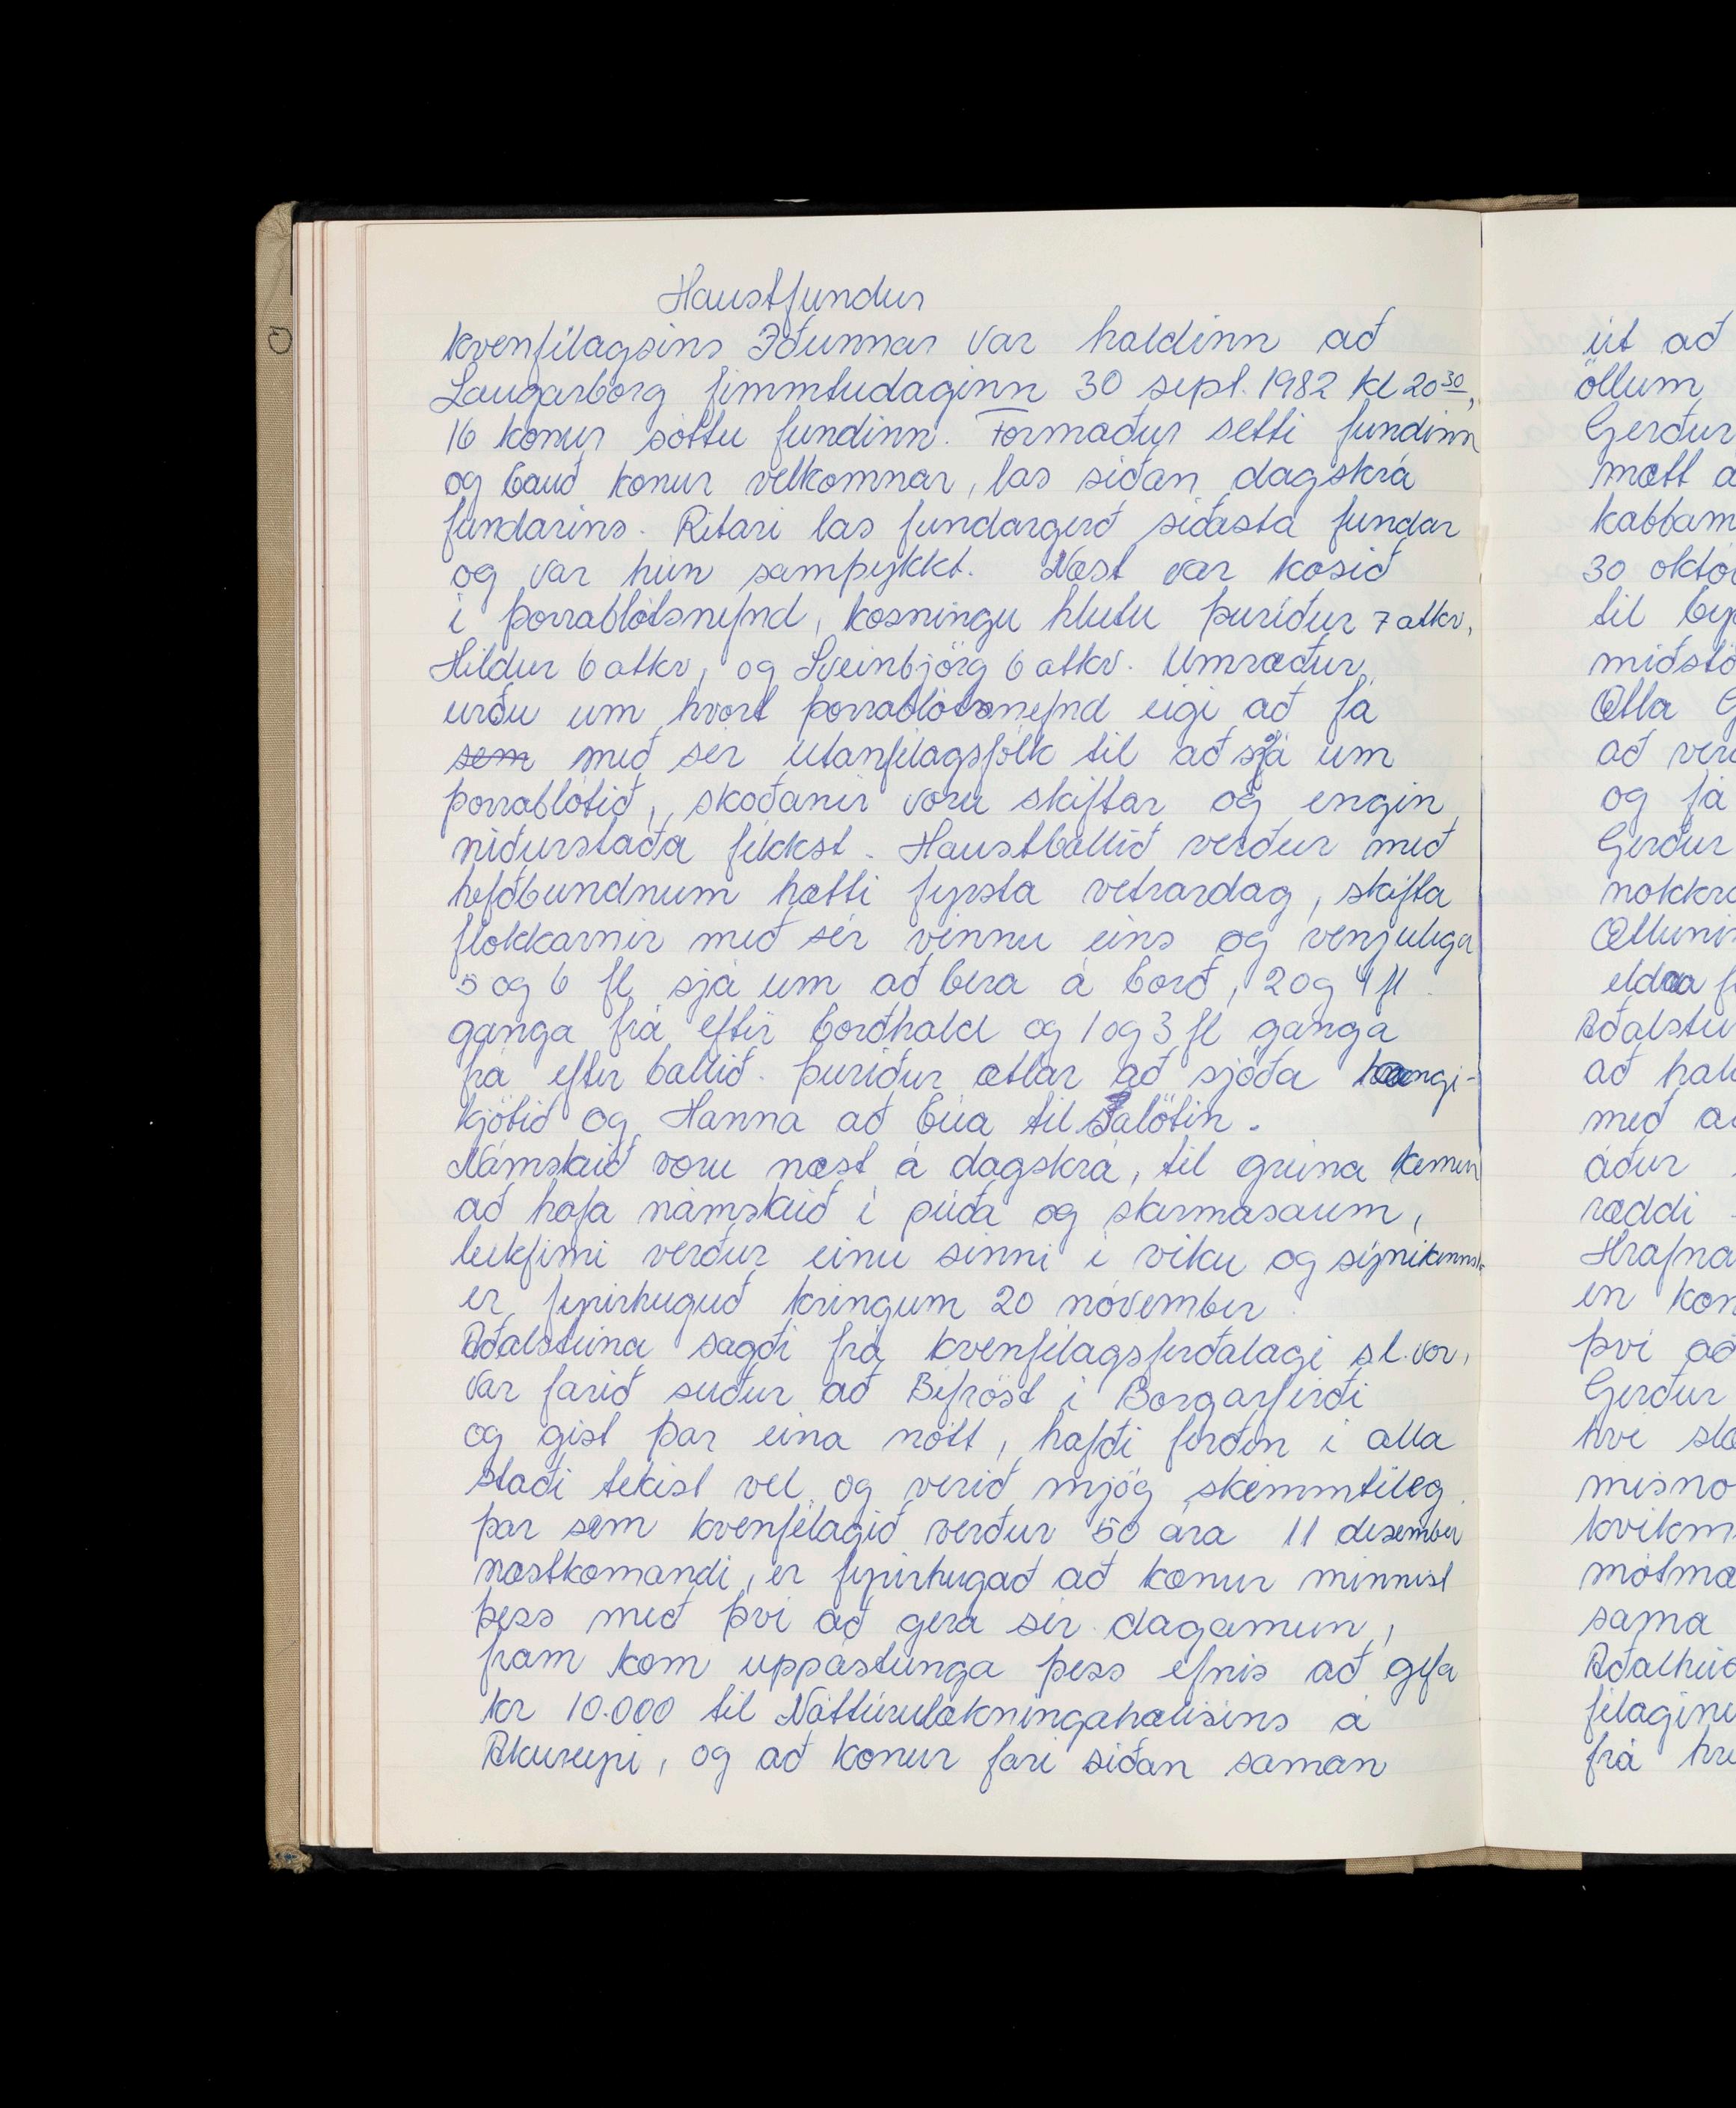 Haustfundur
kvenfélagsins Iðunnar var haldinn að
Laugarborg fimmtudaginn 30 sept. 1982 kl 20 30,
16 konur sóttu fundinn. Formaður setti fundinn
og bauð konur velkomnar, las síðan dagskrá
fundarins. Ritari las fundargerð síðasta fundar
og var hún samþykkt. Næst var kosið
í þorrablótsnefnd, kosningu hlutu Þuríður 7 atkv,
Hildur 6 atkv, og Sveinbjörg 6 atkv. Umræður
urðu um hvort þorrablótsnefnd eigi að fá
sem með sér utanfélagsfólk til að sjá um
þorrablótið, skoðanir voru skiftar og engin
niðurstaða fékkst. Haustballið verður með
hefðbundnum hætti fyrsta vetrardag, skifta
flokkarnir með sér vinnu eins og venjulega
5 og 6 fl sjá um að bera á borð, 2 og 4 fl
ganga frá eftir borðhald og 1 og 3 fl ganga
frá eftir ballið. Þuríður ætlar að sjóða hangi-
kjötið og Hanna að búa til salötin.
Námskeið voru næst á dagskrá, til greina kemur
að hafa námskeið í púða og skermasaum,
leikfimi verður einu sinni í viku og sýnikennsla
er fyrirhuguð kringum 20 nóvember.
Aðalsteina sagði frá kvenfélagsferðalagi sl. vor,
var farið suður að Bifröst í Borgarfirði
og gist þar eina nótt, hafði ferðin í alla
staði tekist vel og verið mjög skemmtileg.
Þar sem kvenfélagið verður 50 ára 11 desember
næstkomandi, er fyrirhugað að konur minnist
þess með því að gera sér dagamun,
fram kom uppástunga þess efnis að gefa
kr 10.000 til Náttúrulækningahælisins á
Akureyri, og að konur fari síðan saman
út að
öllum
Gerður
mætt a
kabbam
30 októ
til by
miðstö
Ætla G
að ver
og fá
Gerður
nokkr
Ællunin
elda f
Aðalste
að hal
með a
áður
ræddi
Hrafna
en kon
því að
Gerður
hve slæ
misno
kvikm
mótmæ
sama
Aðalheið
félaginu
frá hre